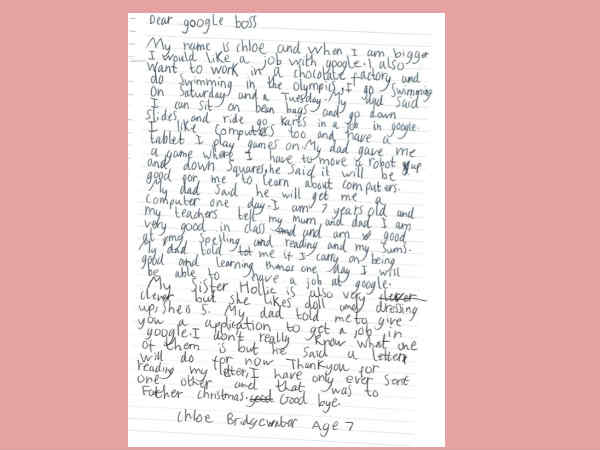 Dear google boss
My name is Chloe and when I am bigger
I would like a job with google. I also
want to work in a chocolate factory and
do swimming in the olympics. I go swimming
on Saturday and a Tuesday. My dad said
I can sit on bean bags and go down
slides and ride go karts in a job in google.
I like computers too and have a
tablet I play games on. My dad gave me
a game where I have to move a robot up
and down squares, he said it will be
good for me to learn about computers.
My dad said he will get me a
computer one day. I am 7 years old and
my teachers tell my mum and dad I am
very good in class and am good
at my spelling and reading and my sums.
My dad told me if I carry on being
good and learning one day I will
be able to have a job at google.
My sister Hollie is also very clever
clever but she likes doll and dressing
up, shes 5. My dad told me to give
you a application to get a job in
google. I don't really know what one
of them is but he said a letter
will do for now Thankyou for
reading my letter, I have only ever sent
one other and that was to
Father christmas. Good bye.
Chloe Bridgewater Age 7